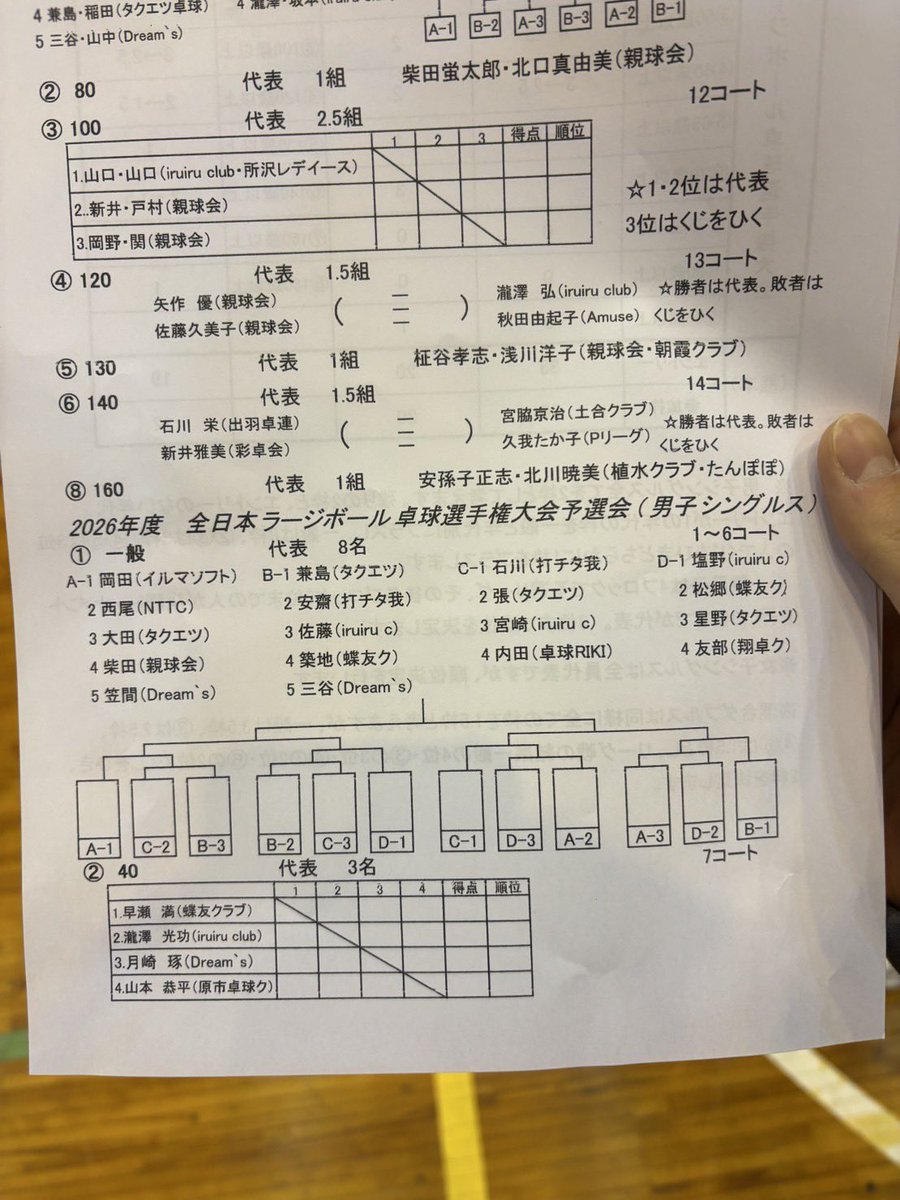 4 兼島・稲田(タクエツ卓球)
5 三谷・山中(Dream`s)
A-1 B-2 A-3 B-3 A-2 B-1
② 80 代表 1組 柴田蛍太郎・北口真由美(親球会)
12コート
③ 100 代表 2.5組
1 2 3 得点 順位
1.山口・山口(iruiru club・所沢レデイース)
2..新井・戸村(親球会)
3.岡野・関(親球会)
☆1・2位は代表
3位はくじをひく
13コート
④ 120 代表 1.5組
矢作 優(親球会) ( － ) 瀧澤 弘(iruiru club) ☆勝者は代表。敗者は
佐藤久美子(親球会) － 秋田由起子(Amuse) くじをひく
⑤ 130 代表 1組 柾谷孝志・浅川洋子(親球会・朝霞クラブ)
14コート
⑥ 140 代表 1.5組
石川 栄(出羽卓連) ( － ) 宮脇京治(土合クラブ) ☆勝者は代表。敗者は
新井雅美(彩卓会) － 久我たか子(Pリーグ) くじをひく
⑧ 160 代表 1組 安孫子正志・北川暁美(植水クラブ・たんぽぽ)
2026年度 全日本ラージボール卓球選手権大会予選会(男子シングルス)
① 一般 代表 8名 1～6コート
A-1 岡田(イルマソフト) B-1 兼島(タクエツ) C-1 石川(打チタ我) D-1 塩野(iruiru c)
2 西尾(NTTC) 2 安齋(打チタ我) 2 張(タクエツ) 2 松郷(蝶友ク)
3 大田(タクエツ) 3 佐藤(iruiru c) 3 宮崎(iruiru c) 3 星野(タクエツ)
4 柴田(親球会) 4 築地(蝶友ク) 4 内田(卓球RIKI) 4 友部(翔卓ク)
5 笠間(Dream`s) 5 三谷(Dream`s)
A-1 C-2 B-3 B-2 C-3 D-1 C-1 D-3 A-2 A-3 D-2 B-1
② 40 代表 3名 7コート
1 2 3 4 得点 順位
1.早瀬 満(蝶友クラブ)
2.瀧澤 光功(iruiru club)
3.月崎 琢(Dream`s)
4.山本 恭平(原市卓球ク)